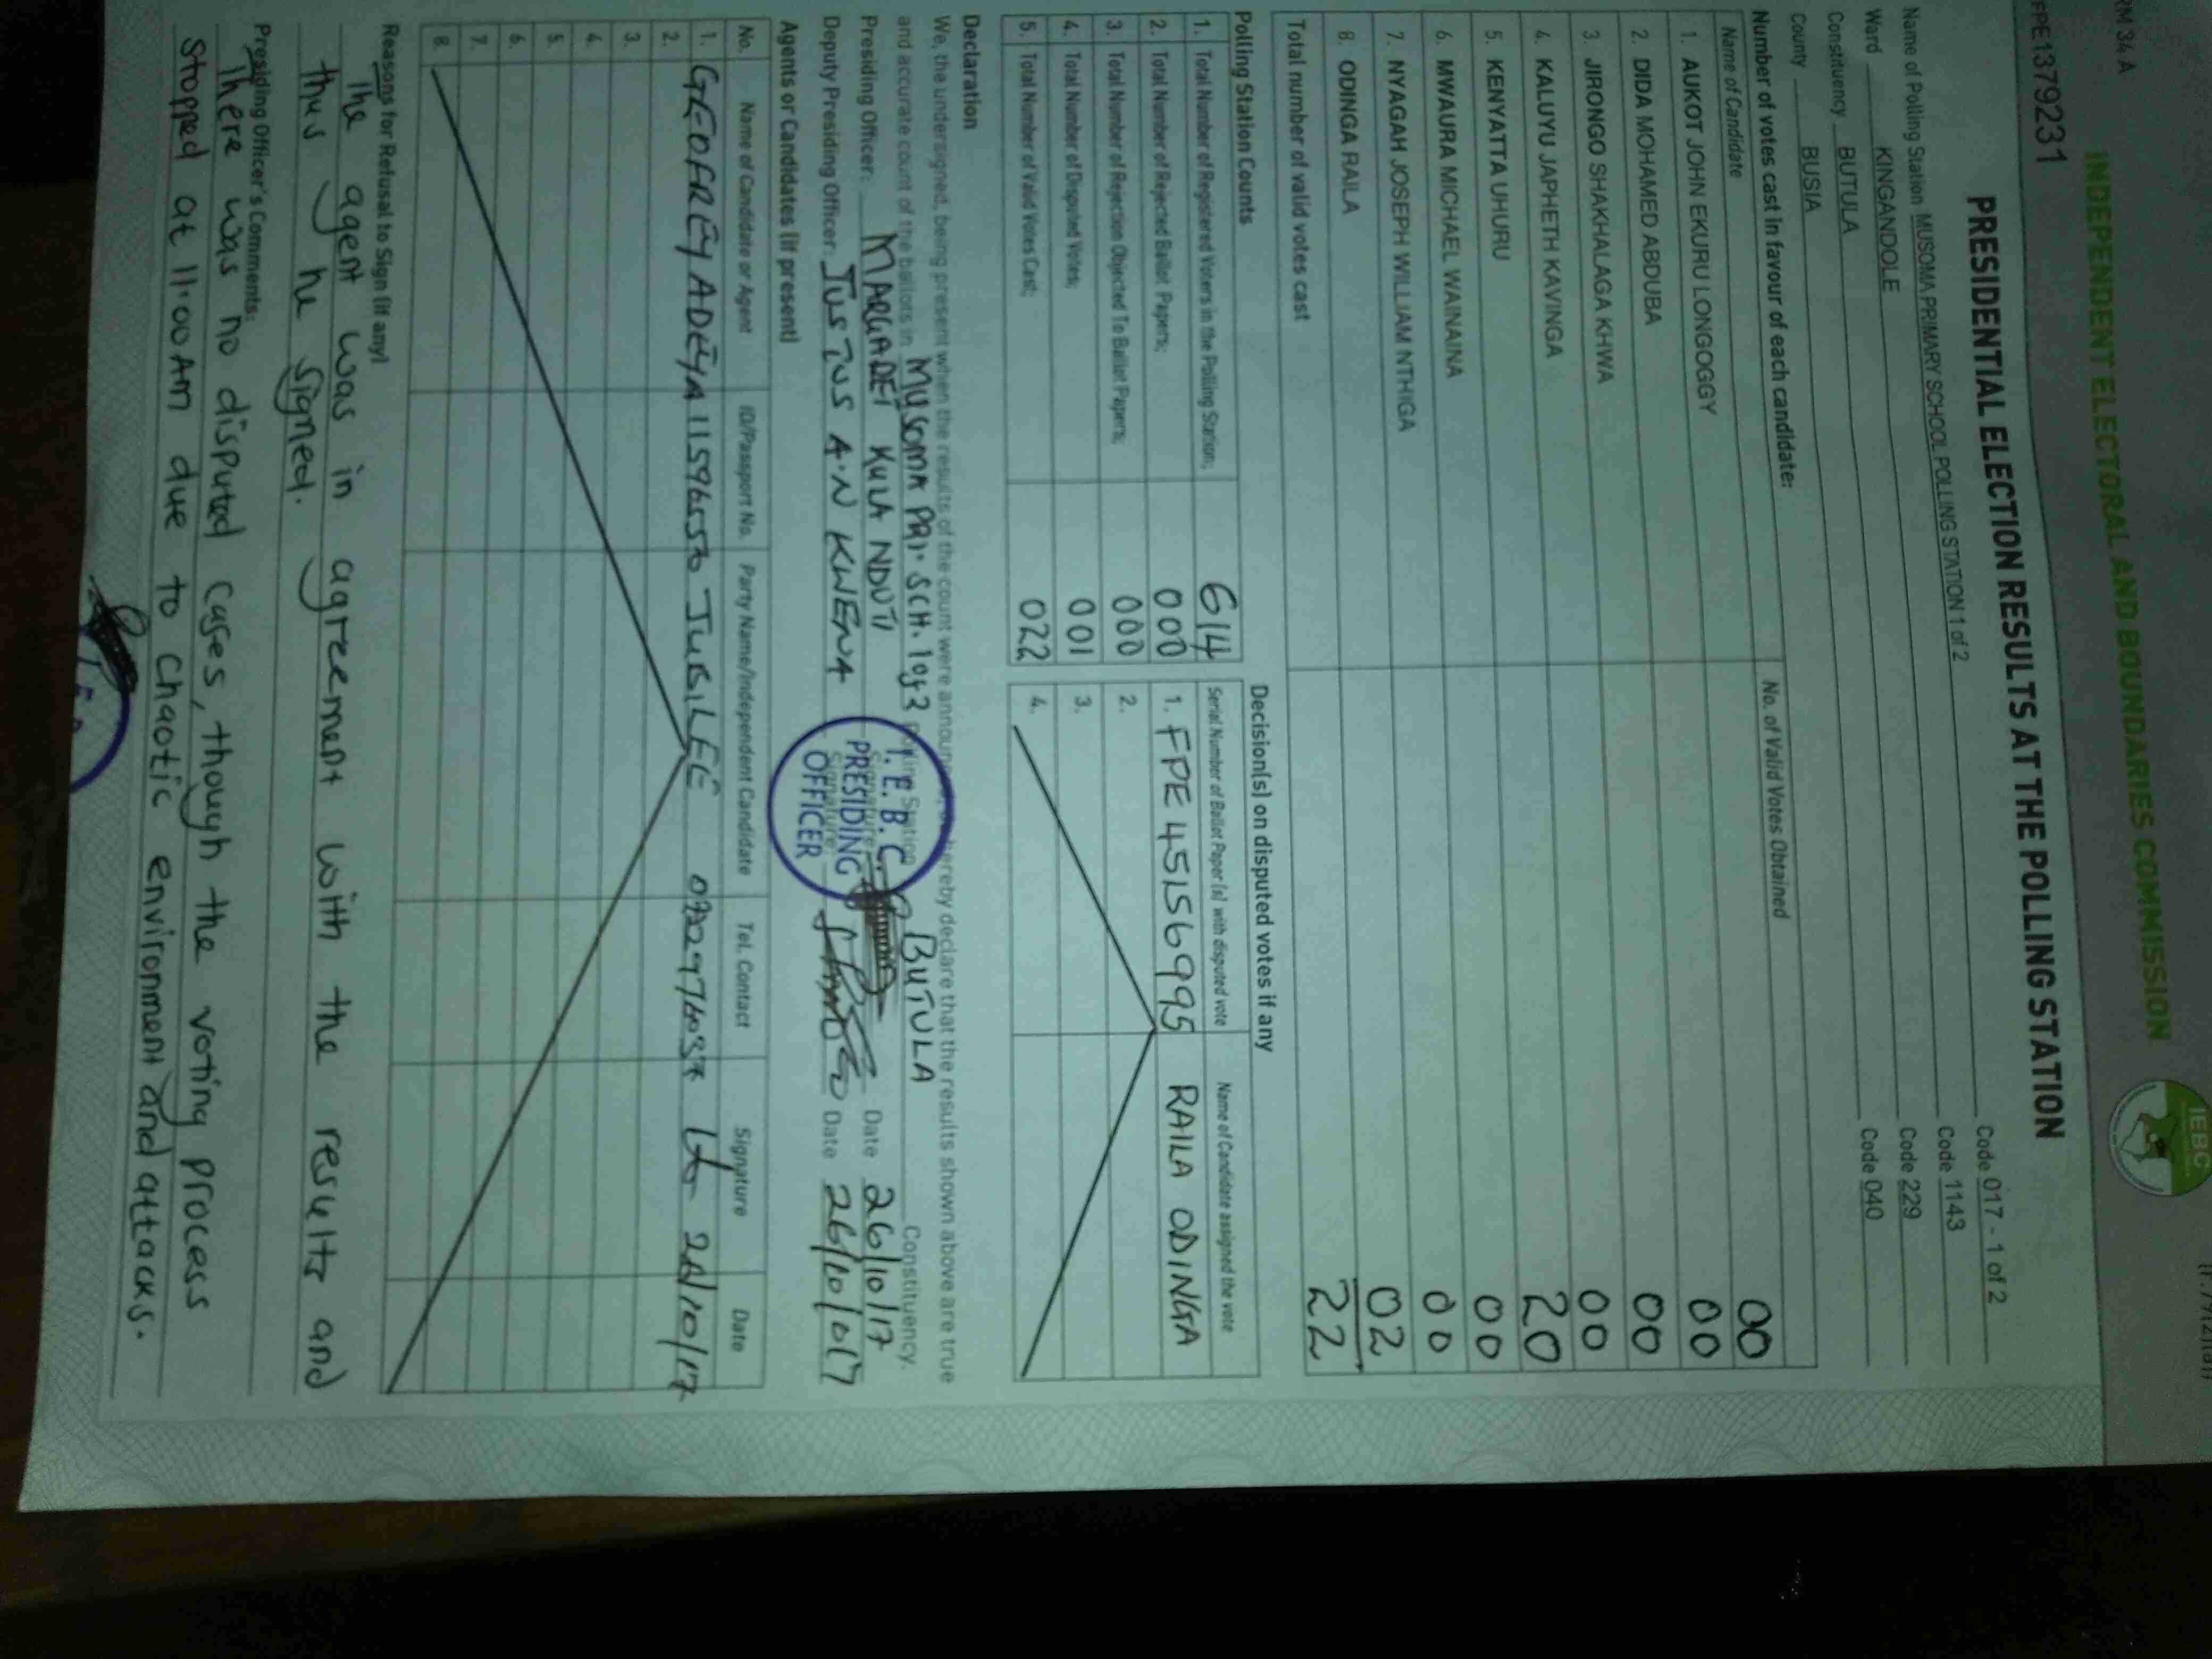 RM 34 A
INDEPENDENT ELECTORAL AND BOUNDARIES COMMISSION
IEBC
FPE1379231
PRESIDENTIAL ELECTION RESULTS AT THE POLLING STATION
Name of Polling Station MUSOMA PRIMARY SCHOOL POLLING STATION 1 of 2 Code 017 - 1 of 2
Ward KINGANDOLE Code 1143
Constituency BUTULA Code 229
County BUSIA Code 040
Number of votes cast in favour of each candidate:
Name of Candidate No. of Valid Votes Obtained
1. AUKOT JOHN EKURU LONGOGGY 00
2. DIDA MOHAMED ABDUBA 00
3. JIRONGO SHAKHALAGA KHWA 00
4. KALUYU JAPHETH KAVINGA 00
5. KENYATTA UHURU 20
6. MWAURA MICHAEL WAINAINA 00
7. NYAGAH JOSEPH WILLIAM NTHIGA 00
8. ODINGA RAILA 02
Total number of valid votes cast 22
Polling Station Counts
1. Total Number of Registered Voters in the Polling Station; 614
2. Total Number of Rejected Ballot Papers; 000
3. Total Number of Rejection Objected To Ballot Papers; 000
4. Total Number of Disputed Votes; 001
5. Total Number of Valid Votes Cast; 022
Decision(s) on disputed votes if any
Serial Number of Ballot Paper (s) with disputed vote Name of Candidate assigned the vote
1. FPE 45156995 RAILA ODINGA
2.
3.
4.
Declaration
We, the undersigned, being present when the results of the count were announced, do hereby declare that the results shown above are true
and accurate count of the ballots in MUSOMA PRI. SCH. 1 of 2 Polling Station BUTULA Constituency.
Presiding Officer: MARGARET KULA NDUTI Signature Date 26/10/17
Deputy Presiding Officer: JUSTUS A.N KWENA Signature Date 26/10/017
I.E.B.C.
PRESIDING
OFFICER
Agents or Candidates (if present)
No. Name of Candidate or Agent ID/Passport No. Party Name/Independent Candidate Tel. Contact Signature Date
1. GEOFREY ADEYA JUBILEE 26/10/17
2.
3.
4.
5.
6.
7.
8.
Reasons for Refusal to Sign (if any)
The agent was in agreement with the results and
thus he signed.
Presiding Officer's Comments:
There was no disputed cases, though the voting process
stopped at 11.00 AM due to chaotic environment and attacks.